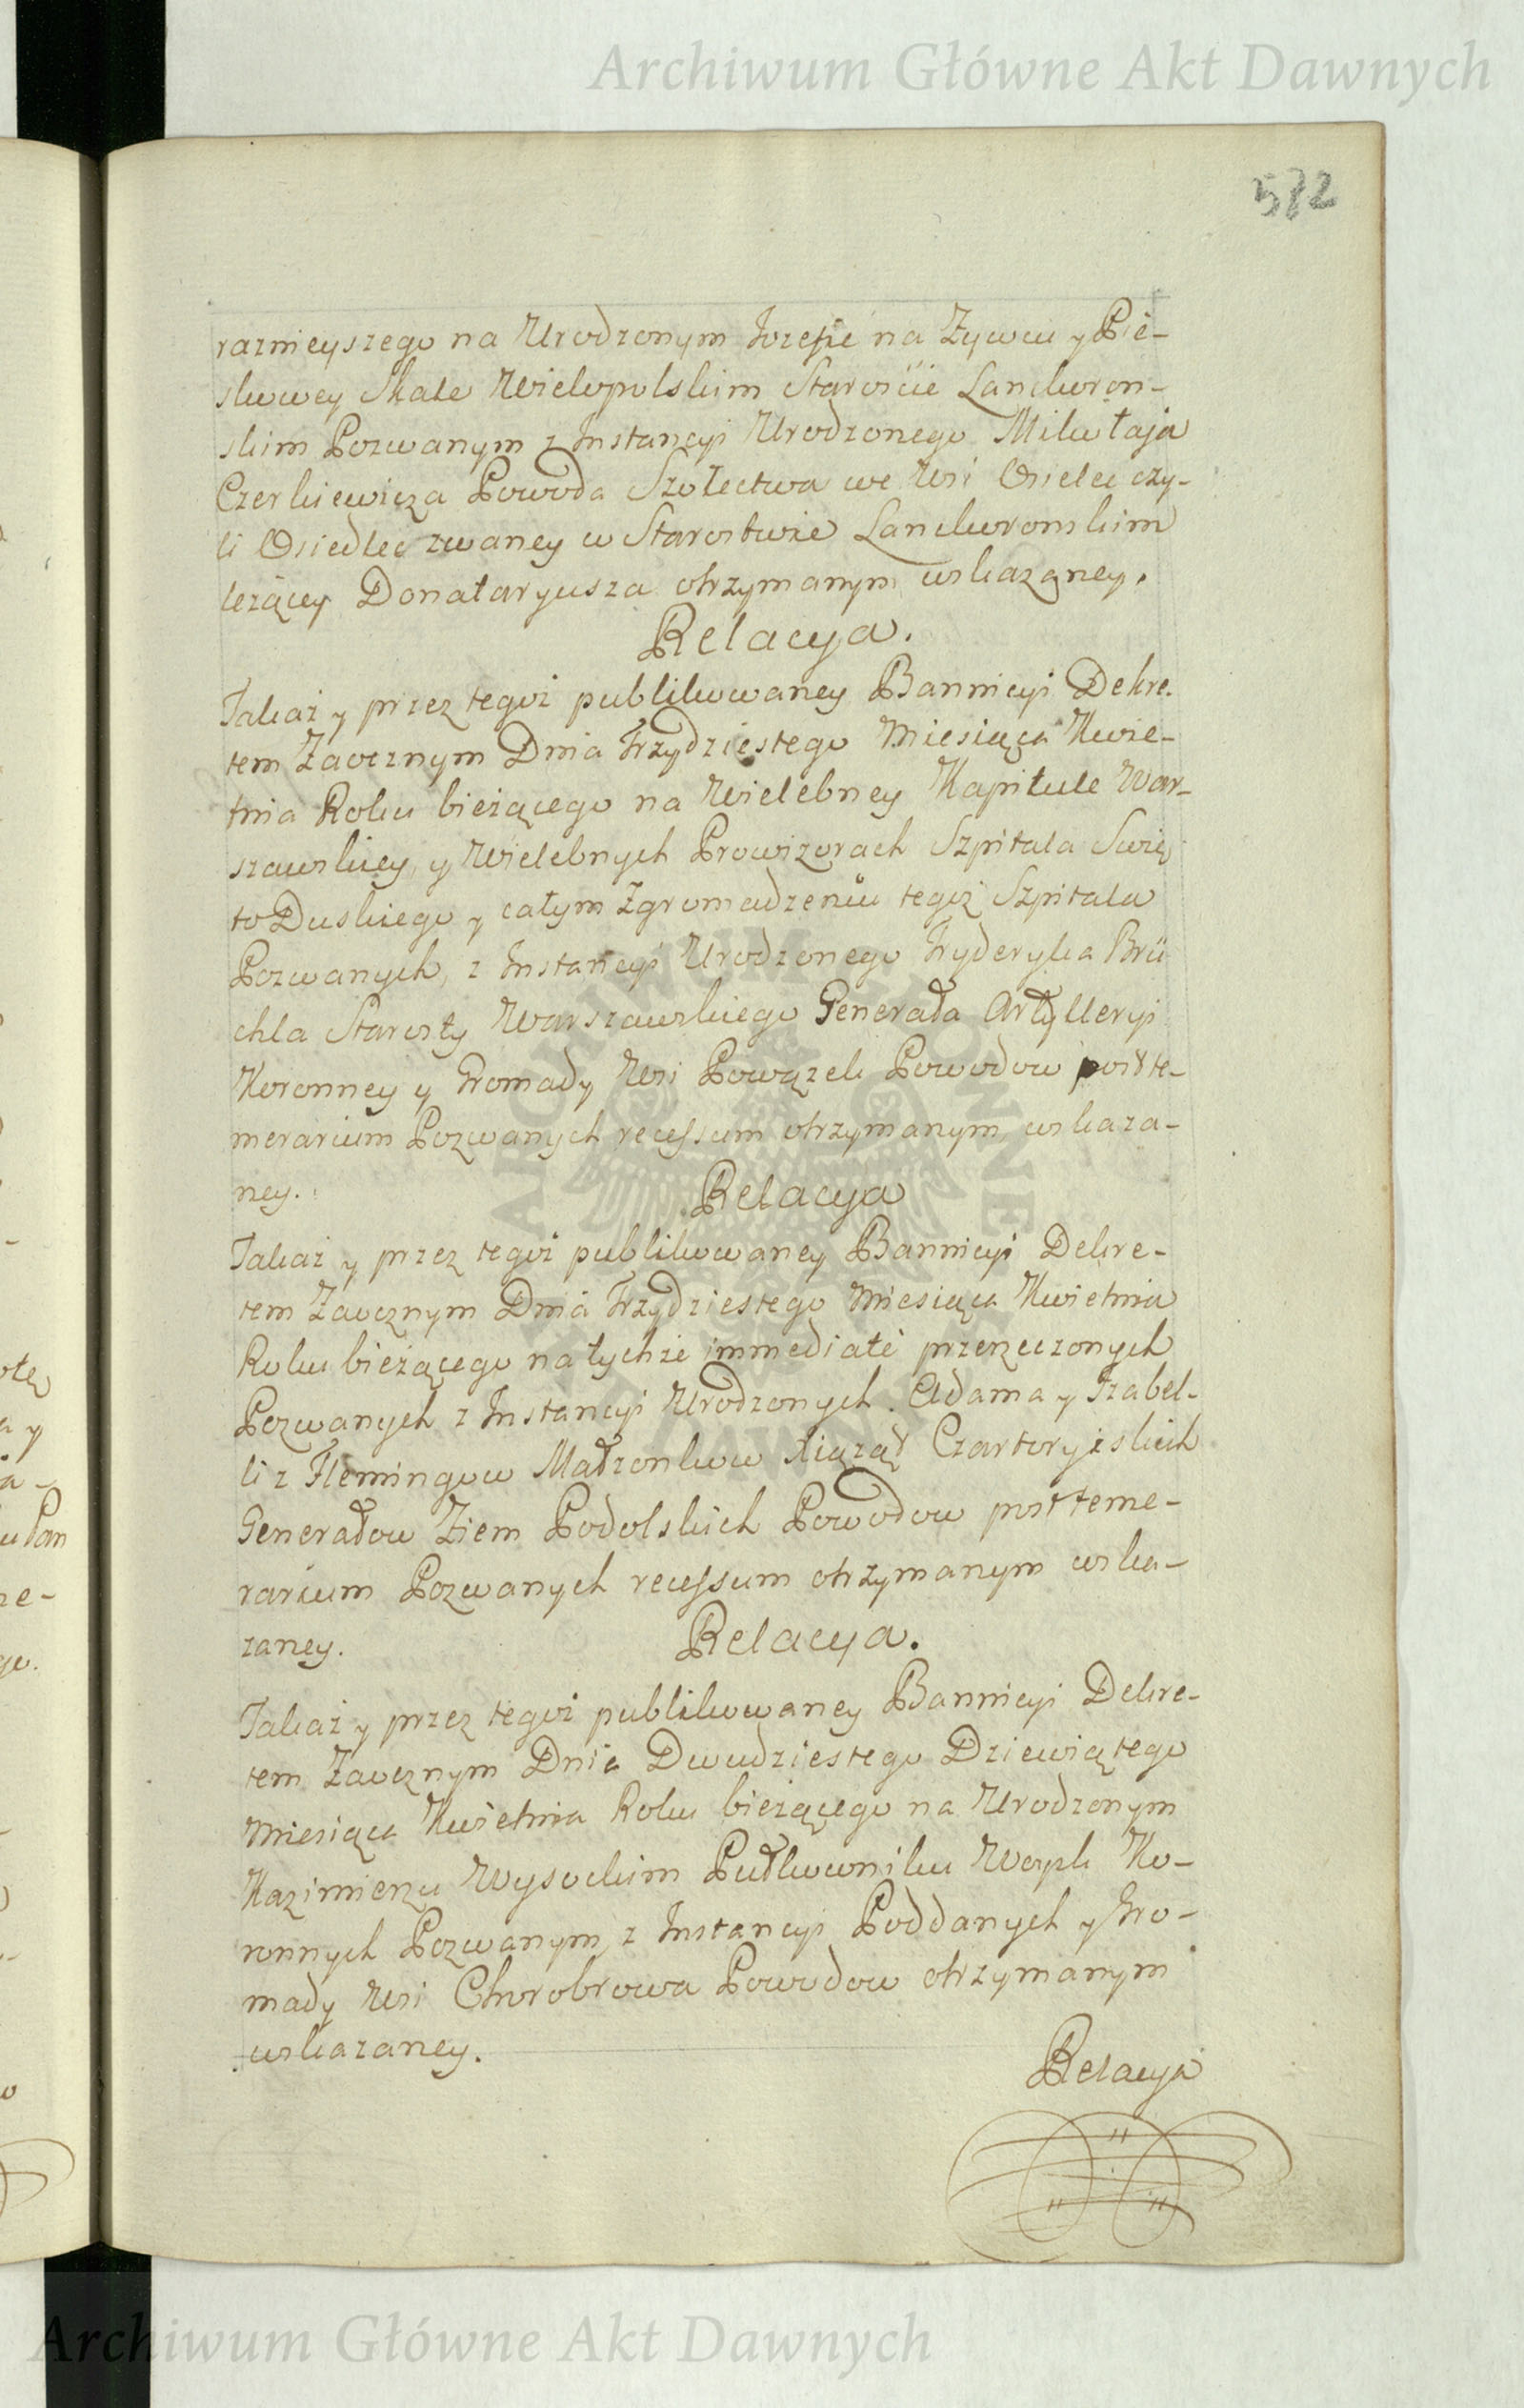 Archiwum Główne Akt Dawnych
582
raznieyszego na Urodzonym Jozefie na Zywcu y Pie-
skowey Skale Wielopolskim Staroście Lanckoron-
skim Pozwanym z Instancyi Urodzonego Mikołaja
Czerkiewicza Powoda Szołectwa we Wsi Osielec czy-
li Osiedlec zwaney w Starostwie Lanckoronskim
leżącey Donataryusza otrzymanym wskazaney.
Relacya.
Takaż y przez tegoż publikowaney Bannicyi Dekre-
tem Zaocznym Dnia Trzydziestego Miesiąca Kwie-
tnia Roku bieżącego na Wielebney Kapitule War-
szawskiey, y Wielebnych Prowizorach Szpitala Swię
to Duskiego y całym Zgromadzeniu tegoż Szpitala
Pozwanych, z Instancyi Urodzonego Fryderyka Brü
chla Starosty Warszawskiego Generała Artylleryi
Koronney y Gromady Wsi Powązek Powodow post te-
merarium Pozwanych recessum otrzymanym wskaza-
ney.
Relacya
Takaż y przez tegoż publikowaney Bannicyi Dekre-
tem Zaocznym Dnia Trzydziestego Miesiąca Kwietnia
Roku bieżącego na tychże immediate przerzeczonych
Pozwanych z Instancyi Urodzonych Adama y Izabel-
li z Flemingow Małzonkow Xiążąt Czartoryżskich
Generałow Ziem Podolskich Powodow post teme-
rarium Pozwanych recessum otrzymanym wska-
zaney.
Relacya.
Takaż y przez tegoż publikowaney Bannicyi Dekre-
tem Zaocznym Dnia Dwudziestego Dziewiątego
Miesiąca Kwietnia Roku bieżącego na Urodzonym
Kazimierzu Wysockim Pułkowniku Woysk Ko-
ronnych Pozwanym z Instancyi Poddanych y Gro-
mady Wsi Chorobrowa Powodow otrzymanym
wskazaney.
Relacya
Archiwum Główne Akt Dawnych